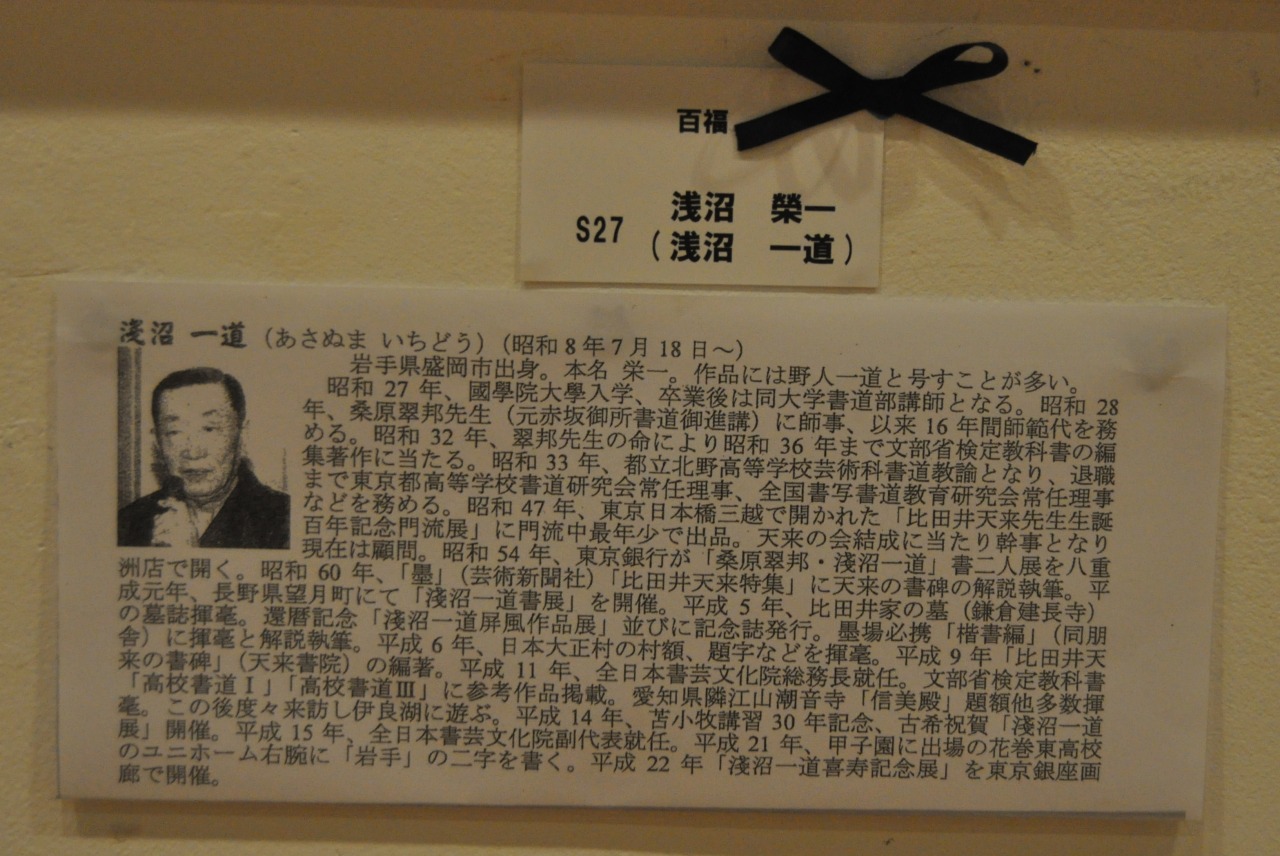 百福
S27
浅沼 榮一
(浅沼 一道)
淺沼 一道(あさぬま いちどう)(昭和8年7月18日~)
岩手県盛岡市出身。本名 栄一。作品には野人一道と号すことが多い。
昭和 27 年、國學院大學入学、卒業後は同大学書道部講師となる。昭和 28
年、桑原翠邦先生(元赤坂御所書道御進講)に師事、以来 16 年間師範代を務
める。昭和 32 年、翠邦先生の命により昭和 36 年まで文部省検定教科書の編
集著作に当たる。昭和 33 年、都立北野高等学校芸術科書道教諭となり、退職
まで東京都高等学校書道研究会常任理事、全国書写書道教育研究会常任理事
などを務める。昭和 47 年、東京日本橋三越で開かれた「比田井天来先生生誕
百年記念門流展」に門流中最年少で出品。天来の会結成に当たり幹事となり
現在は顧問。昭和 54 年、東京銀行が「桑原翠邦・淺沼一道」書二人展を八重
洲店で開く。昭和 60 年、「墨」(芸術新聞社)「比田井天来特集」に天来の書碑の解説執筆。平
成元年、長野県望月町にて「淺沼一道書展」を開催。平成 5 年、比田井家の墓(鎌倉建長寺)
の墓誌揮毫。還暦記念「淺沼一道屏風作品展」並びに記念誌発行。墨場必携「楷書編」(同朋
舎)に揮毫と解説執筆。平成 6 年、日本大正村の村額、題字などを揮毫。平成 9 年「比田井天
来の書碑」(天来書院)の編著。平成 11 年、全日本書芸文化院総務長就任。文部省検定教科書
「高校書道Ⅰ」「高校書道Ⅲ」に参考作品掲載。愛知県隣江山潮音寺「信美殿」題額他多数揮
毫。この後度々来訪し伊良湖に遊ぶ。平成 14 年、苫小牧講習 30 年記念、古希祝賀「淺沼一道
展」開催。平成 15 年、全日本書芸文化院副代表就任。平成 21 年、甲子園に出場の花巻東高校
のユニホーム右腕に「岩手」の二字を書く。平成 22 年「淺沼一道喜寿記念展」を東京銀座画
廊で開催。